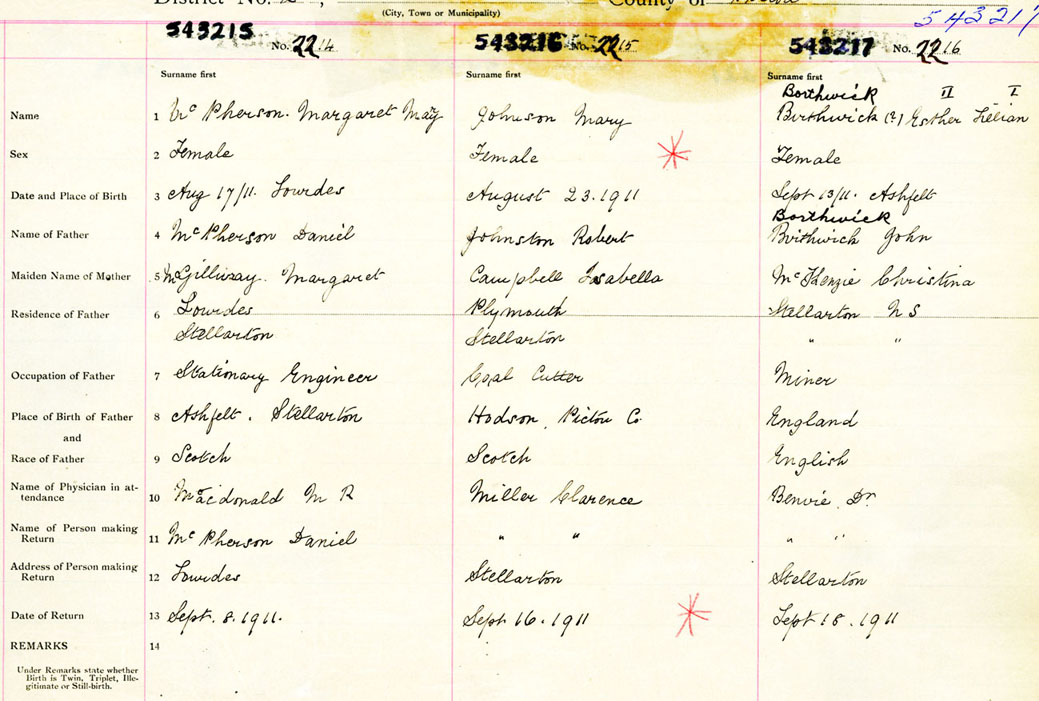 District No. 2, County of
(City, Town or Municipality)
543217
543215 No. 2214 543216 No. 2215 543217 No. 2216
Surname first Surname first Surname first
Borthwick II I
Name 1 McPherson. Margaret May Johnson Mary Birthwick (?) Esther Lillian
Sex 2 Female Female Female
Date and Place of Birth 3 Aug 17/11. Lourdes August 23. 1911 Sept 13/11. Ashfelt
Borthwick
Name of Father 4 McPherson Daniel Johnston Robert Birthwick John
Maiden Name of Mother 5 McGillivray. Margaret Campbell Isabella McKenzie Christina
Residence of Father 6 Lourdes Plymouth Stellarton N S
Stellarton Stellarton " "
Occupation of Father 7 Stationary Engineer Coal Cutter Miner
Place of Birth of Father 8 Ashfelt. Stellarton Hodson, Pictou Co. England
and
Race of Father 9 Scotch Scotch English
Name of Physician in at-
tendance 10 Macdonald M R Miller Clarence Benvie, Dr.
Name of Person making
Return 11 McPherson Daniel " " " "
Address of Person making
Return 12 Lourdes Stellarton Stellarton
Date of Return 13 Sept. 8. 1911. Sept 16. 1911 Sept 18. 1911
REMARKS 14
Under Remarks state whether
Birth is Twin, Triplet, Ille-
gitimate or Still-birth.